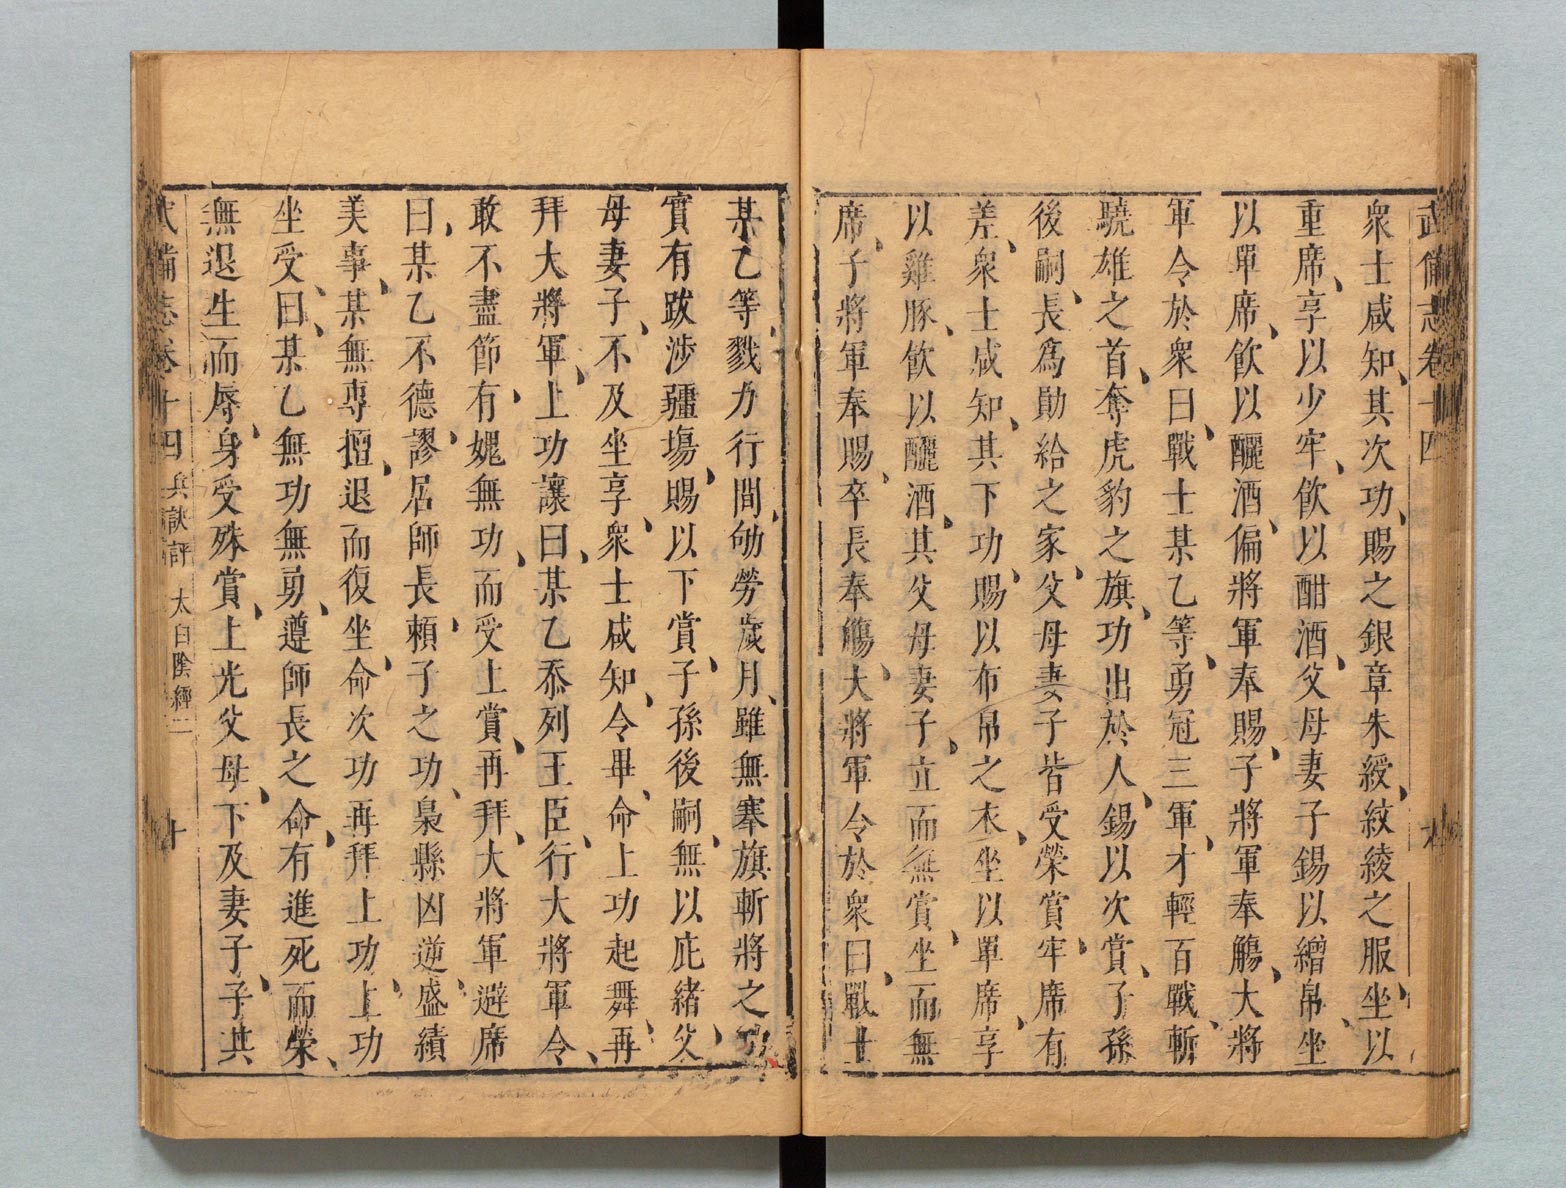 武備志卷十四
衆士咸知、其次功、賜之銀章朱綬、紋綾之服、坐以
重席、享以少牢、飲以酣酒、父母妻子錫以繒帛、坐
以單席、飲以釃酒、偏將軍奉賜、子將軍奉觴、大將
軍令於衆曰、戰士某乙等、勇冠三軍、才輕百戰、斬
驍雄之首、奪虎豹之旗、功出於人、錫以次賞、子孫
後嗣、長爲勛給之家、父母妻子皆受榮賞、牢席有
差、衆士咸知、其下功、賜以布帛之衣、坐以單席、享
以雞豚、飲以釃酒、其父母妻子、立而無賞、坐而無
席、子將軍奉賜、卒長奉觴、大將軍令於衆曰、戰士
某乙等、戮力行間、劬勞歲月、雖無搴旗斬將之功、
實有跋涉疆塲、賜以下賞、子孫後嗣、無以庇緒、父
母妻子、不及坐享、衆士咸知、令畢、命上功起舞、再
拜大將軍、上功讓曰、某乙忝列王臣、行大將軍令、
敢不盡節、有媿無功、而受上賞、再拜、大將軍避席
曰、某乙不德、謬居師長、賴子之功、梟縣凶逆、盛績
美事、某無專擅、退而復坐、命次功再拜上功、上功
坐受、曰、某乙無功無勇、遵師長之命、有進死而榮、
無退生而辱、身受殊賞、上光父母、下及妻子、子其
武備志卷十四 兵訣評 太白陰經二 十